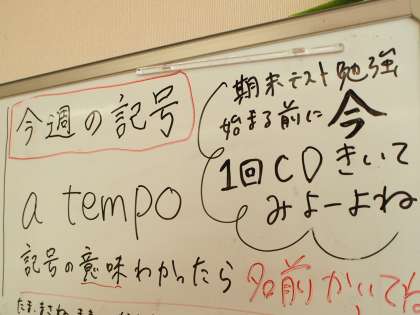 今週の記号
期末テスト勉強
始まる前に今
1回CDきいて
みよーよね
a tempo
記号の意味わかったら
名前かいてね